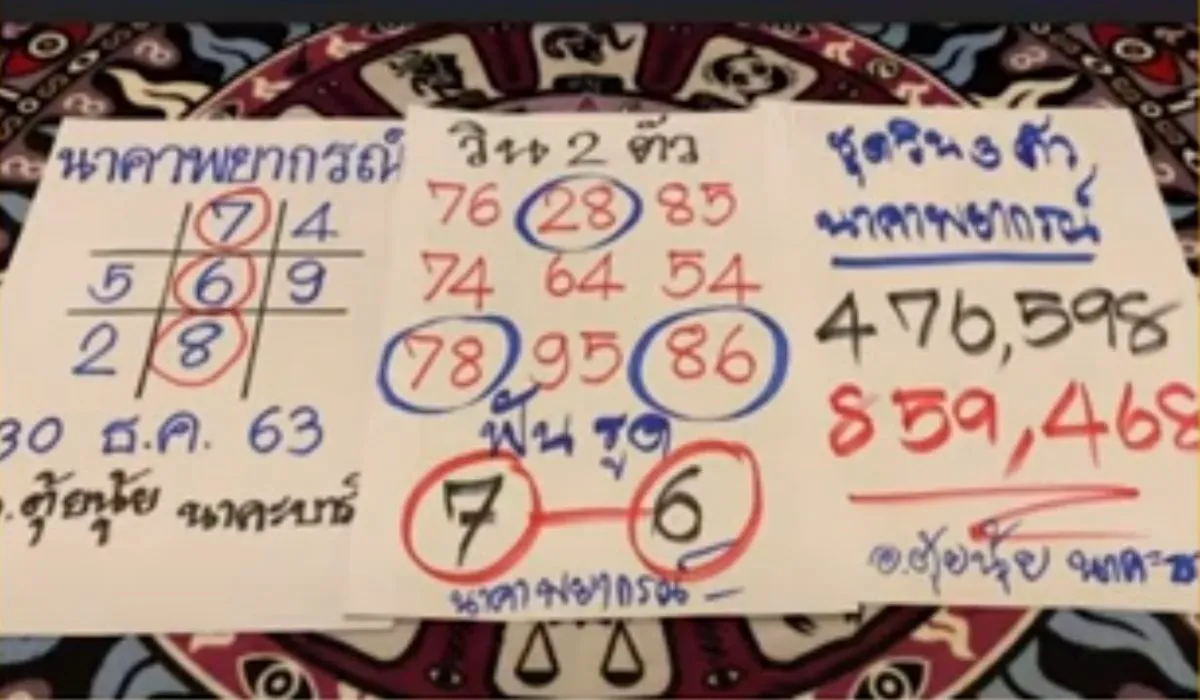 นาคาพยากรณ์
7 4
5 6 9
2 8
30 ธ.ค. 63
.ตุ้ยนุ้ย นาคะบารี
วิน 2 ตัว
76 28 85
74 64 54
78 95 86
ฟัน รูด
7 — 6
นาคาพยากรณ์
ชุดวิน 3 ตัว
นาคาพยากรณ์
476,598
859,468
อ.ตุ้ยนุ้ย นาคะ